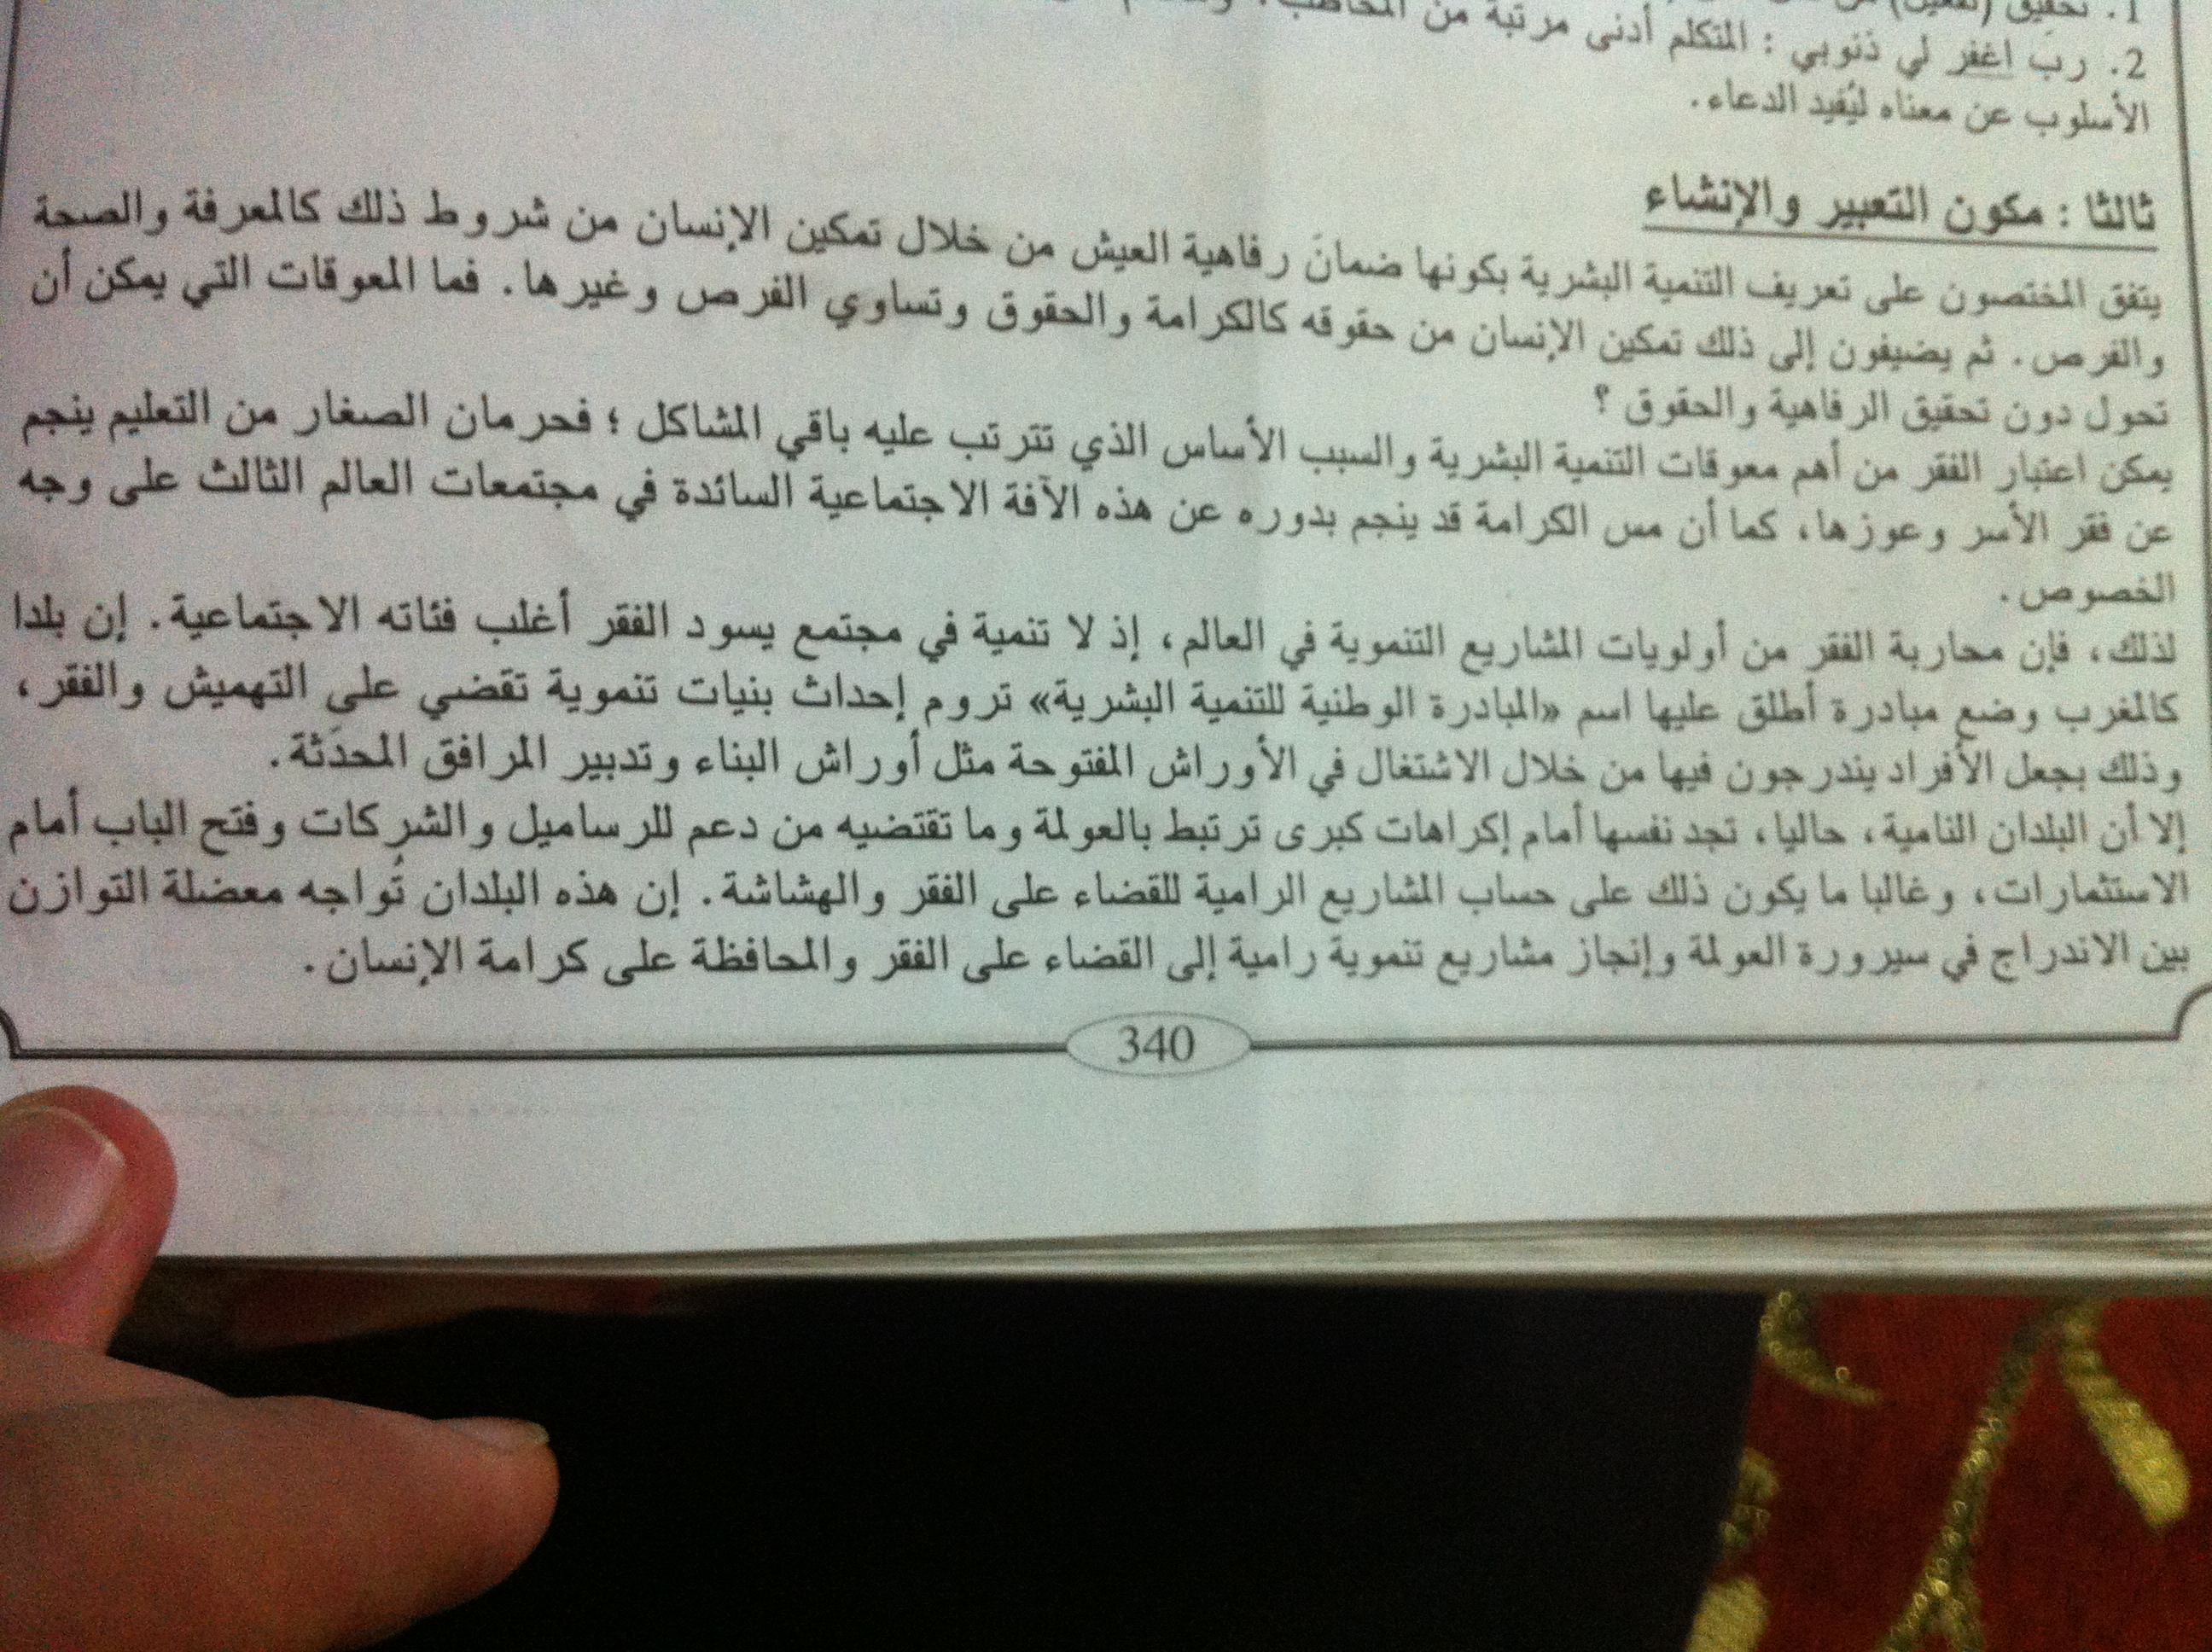 1. تحقيق (تفعيل) من
2. رب اغفر لي ذنوبي : المتكلم أدنى مرتبة من المخاطب،
الأسلوب عن معناه ليُفيد الدعاء.
ثالثا : مكون التعبير والإنشاء
يتفق المختصون على تعريف التنمية البشرية بكونها ضمانَ رفاهية العيش من خلال تمكين الإنسان من شروط ذلك كالمعرفة والصحة
والفرص. ثم يضيفون إلى ذلك تمكين الإنسان من حقوقه كالكرامة والحقوق وتساوي الفرص وغيرها. فما المعوقات التي يمكن أن
تحول دون تحقيق الرفاهية والحقوق ؟
يمكن اعتبار الفقر من أهم معوقات التنمية البشرية والسبب الأساس الذي تترتب عليه باقي المشاكل ؛ فحرمان الصغار من التعليم ينجم
عن فقر الأسر وعوزها، كما أن مس الكرامة قد ينجم بدوره عن هذه الآفة الاجتماعية السائدة في مجتمعات العالم الثالث على وجه
الخصوص.
لذلك، فإن محاربة الفقر من أولويات المشاريع التنموية في العالم، إذ لا تنمية في مجتمع يسود الفقر أغلب فئاته الاجتماعية. إن بلدا
كالمغرب وضع مبادرة أطلق عليها اسم «المبادرة الوطنية للتنمية البشرية» تروم إحداث بنيات تنموية تقضي على التهميش والفقر،
وذلك بجعل الأفراد يندرجون فيها من خلال الاشتغال في الأوراش المفتوحة مثل أوراش البناء وتدبير المرافق المحدَثة.
إلا أن البلدان النامية، حاليا، تجد نفسها أمام إكراهات كبرى ترتبط بالعولمة وما تقتضيه من دعم للرساميل والشركات وفتح الباب أمام
الاستثمارات، وغالبا ما يكون ذلك على حساب المشاريع الرامية للقضاء على الفقر والهشاشة. إن هذه البلدان تُواجه معضلة التوازن
بين الاندراج في سيرورة العولمة وإنجاز مشاريع تنموية رامية إلى القضاء على الفقر والمحافظة على كرامة الإنسان.
340